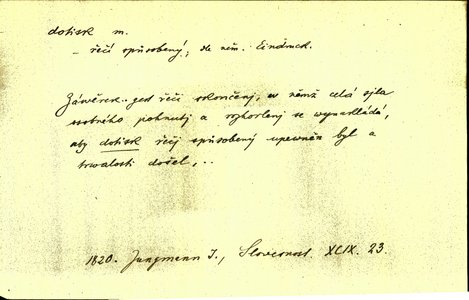 dotisk m.
– řečí spůsobený; dle něm. Eindruck.
Záwěrek.. gest řeči skončenj, w němž celá syla
wrotného pohnutj a rozhorlenj se wynakládá,
aby dotisk řečj spůsobený upewněn byl a
trwalosti došel,..
1820. Jungmann J., Slovesnost. XLIX. 23.